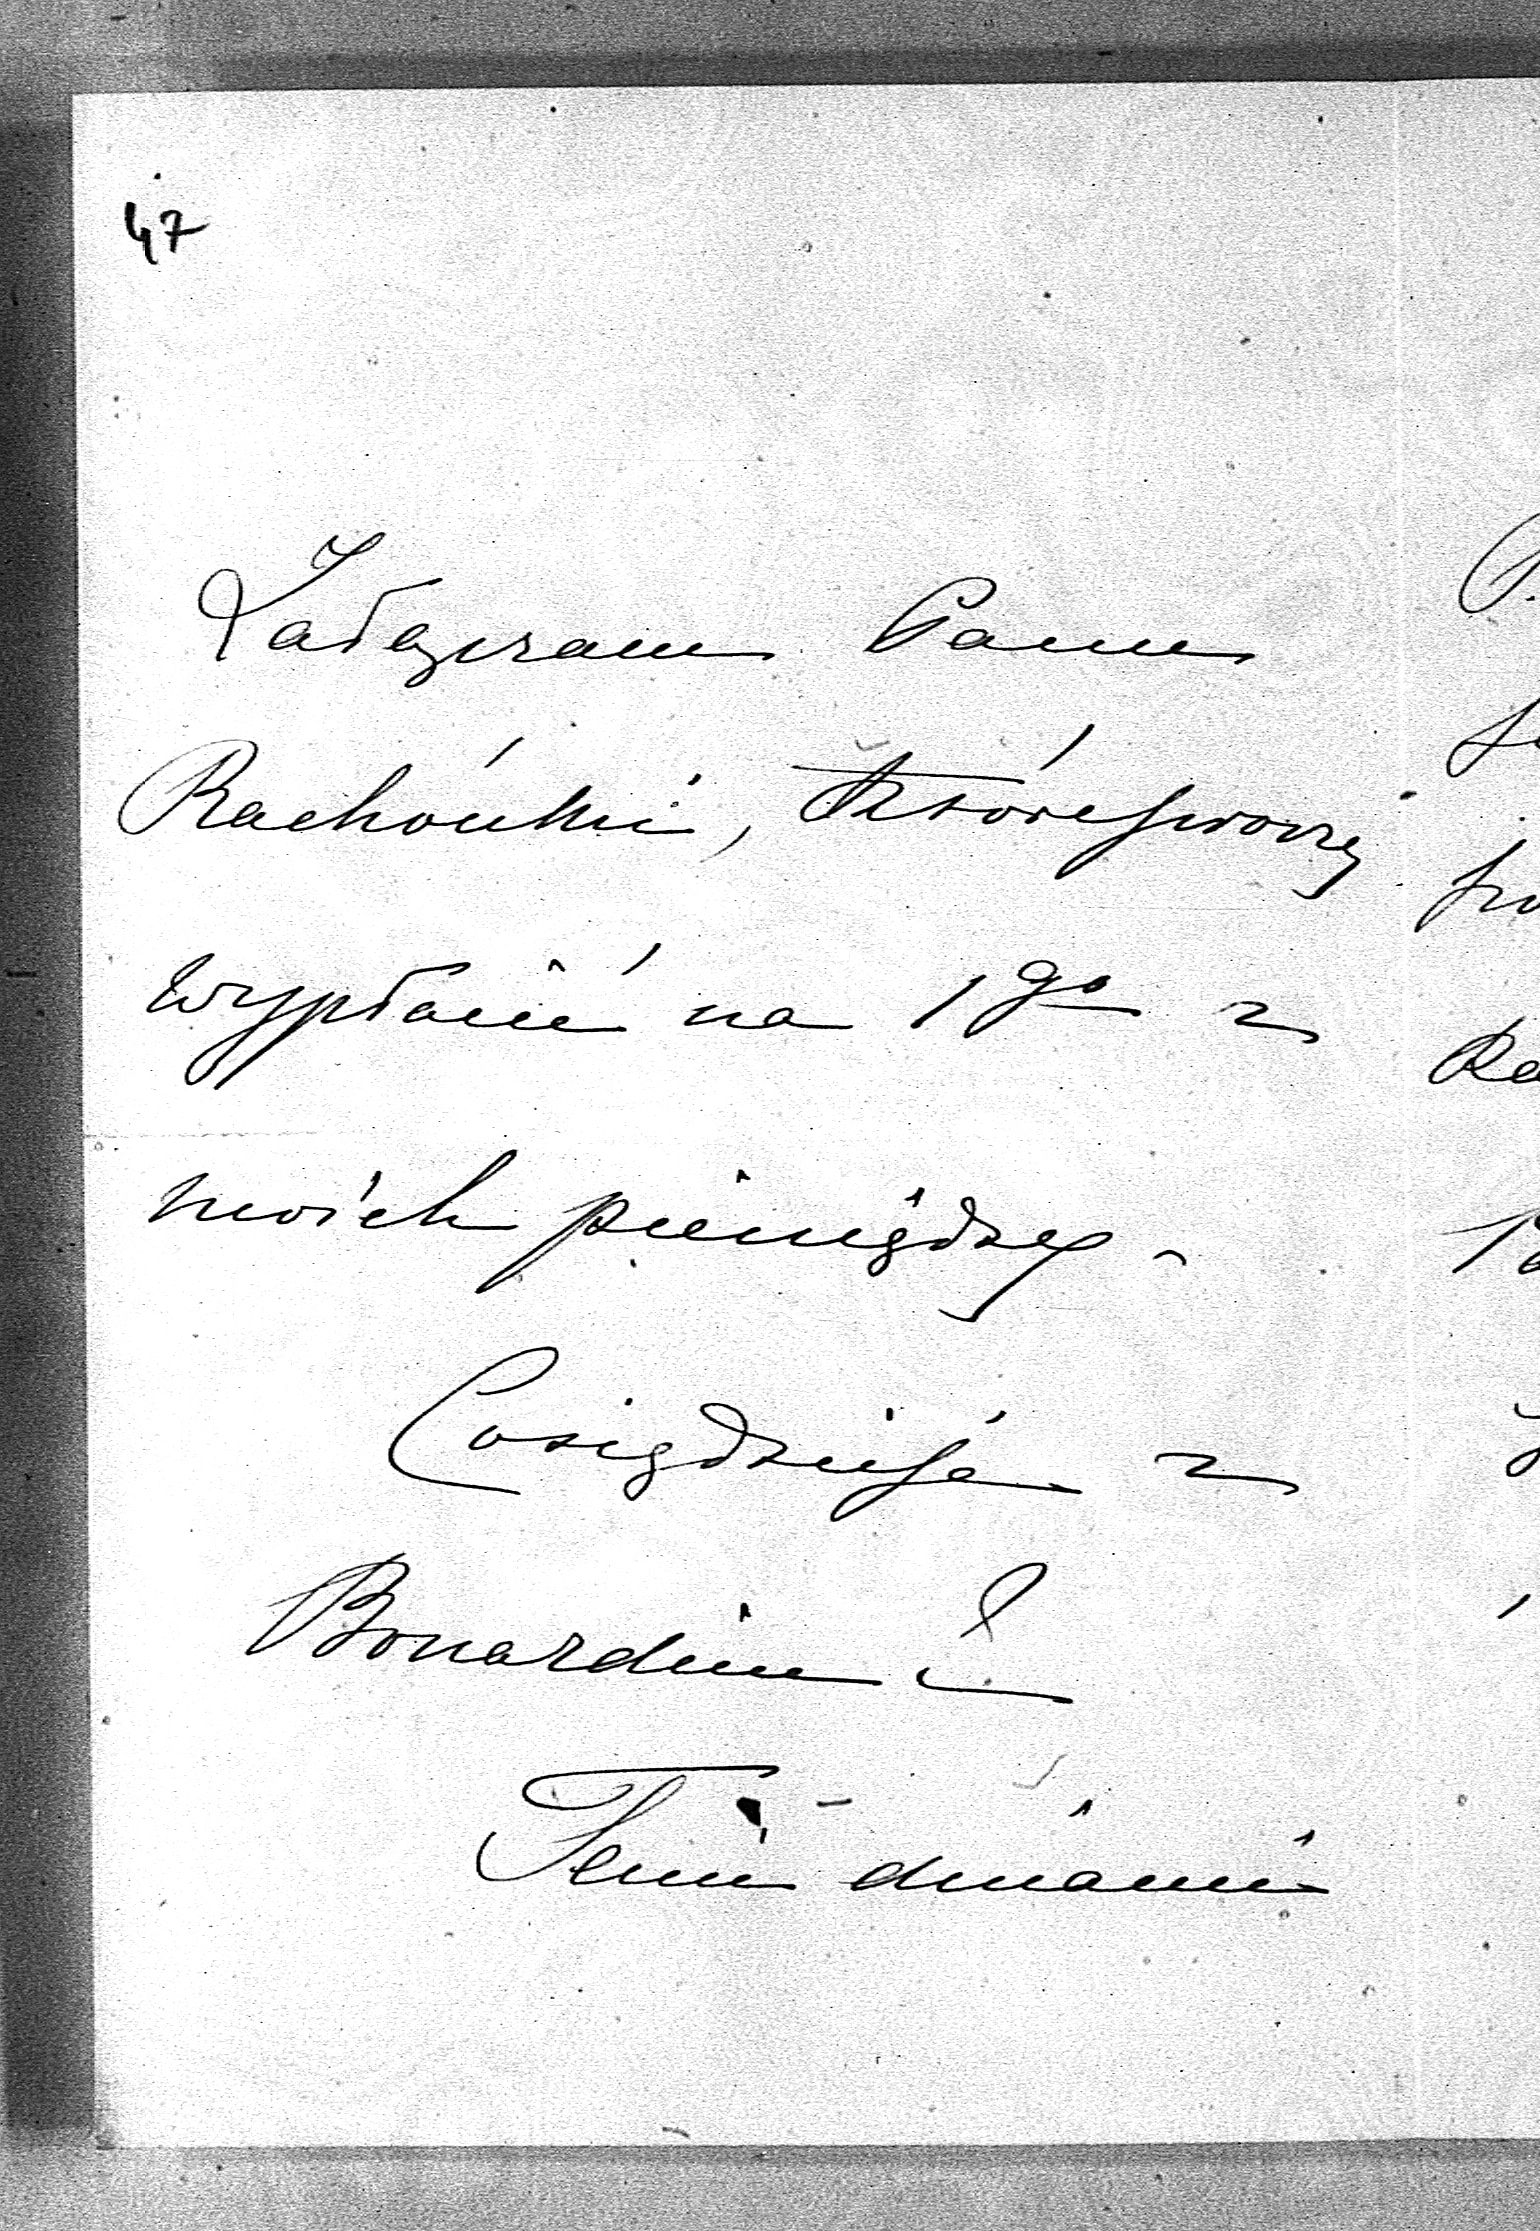 47
Załączam Panu
Rachunki, które proszę
wypłacić na 1go z
moich pieniędzy -
Co się dzieje z
Bonardim?
Temi dniami